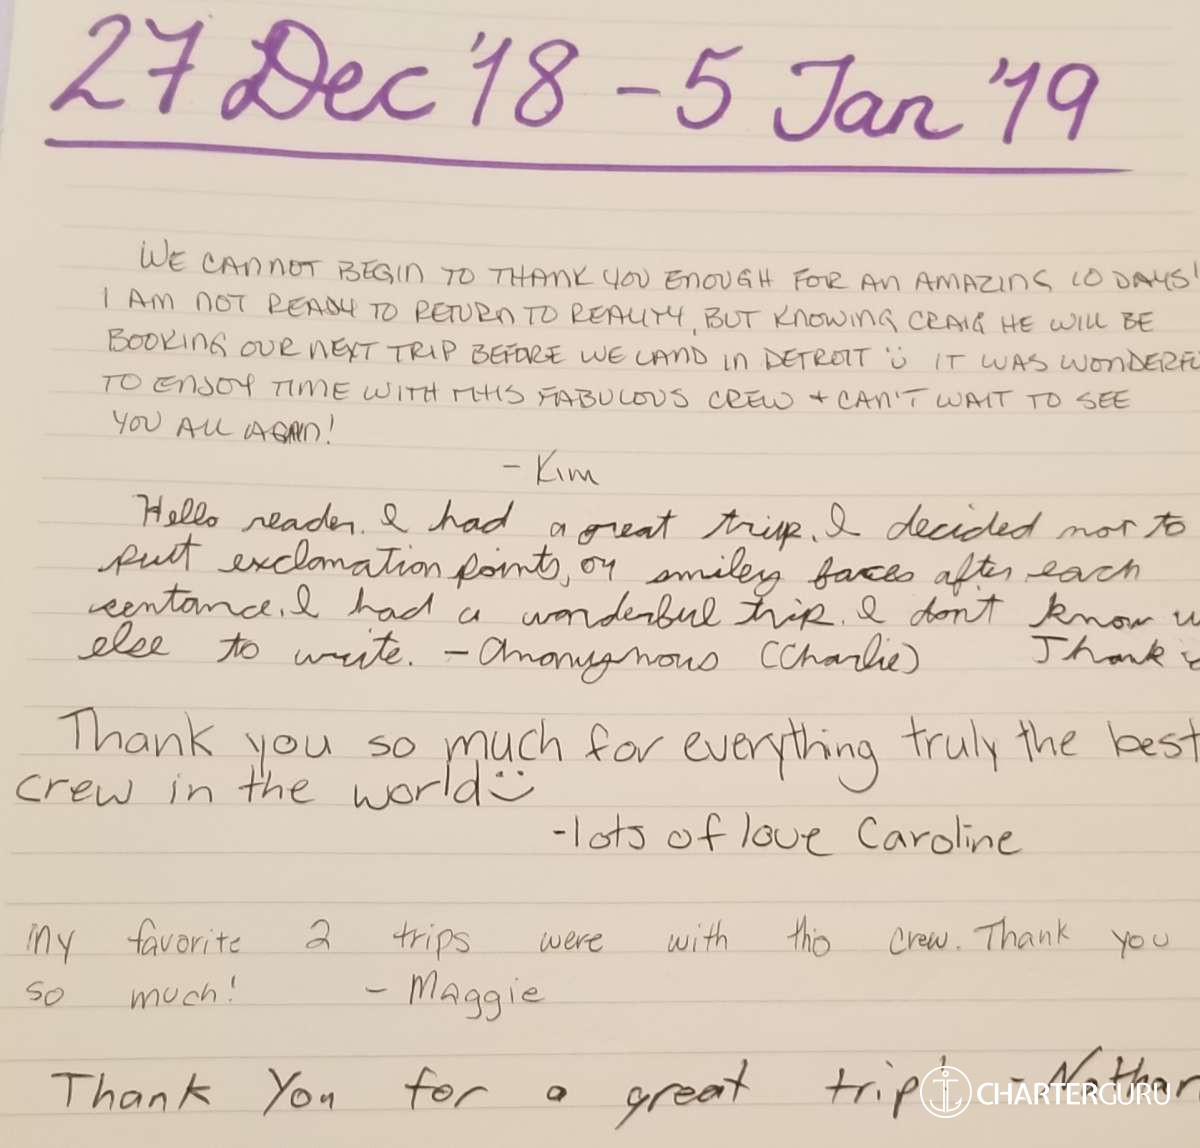 27 Dec '18 - 5 Jan '19
WE CANNOT BEGIN TO THANK YOU ENOUGH FOR AN AMAZING 10 DAYS!
I AM NOT READY TO RETURN TO REALITY, BUT KNOWING CRAIG HE WILL BE
BOOKING OUR NEXT TRIP BEFORE WE LAND IN DETROIT ü IT WAS WONDERFU
TO ENJOY TIME WITH THIS FABULOUS CREW + CAN'T WAIT TO SEE
YOU ALL AGAIN!
- Kim
Hello reader. I had a great trip. I decided not to
put exclamation points, or smiley faces after each
centance. I had a wonderful trip. I don't know
else to write. - Anonymous (Charlie) Thank
Thank you so much for everything truly the best
crew in the world :)
- lots of love Caroline
my favorite 2 trips were with this crew. Thank you
so much! - Maggie
Thank You for a great trip! - Nathan
CHARTERGURU